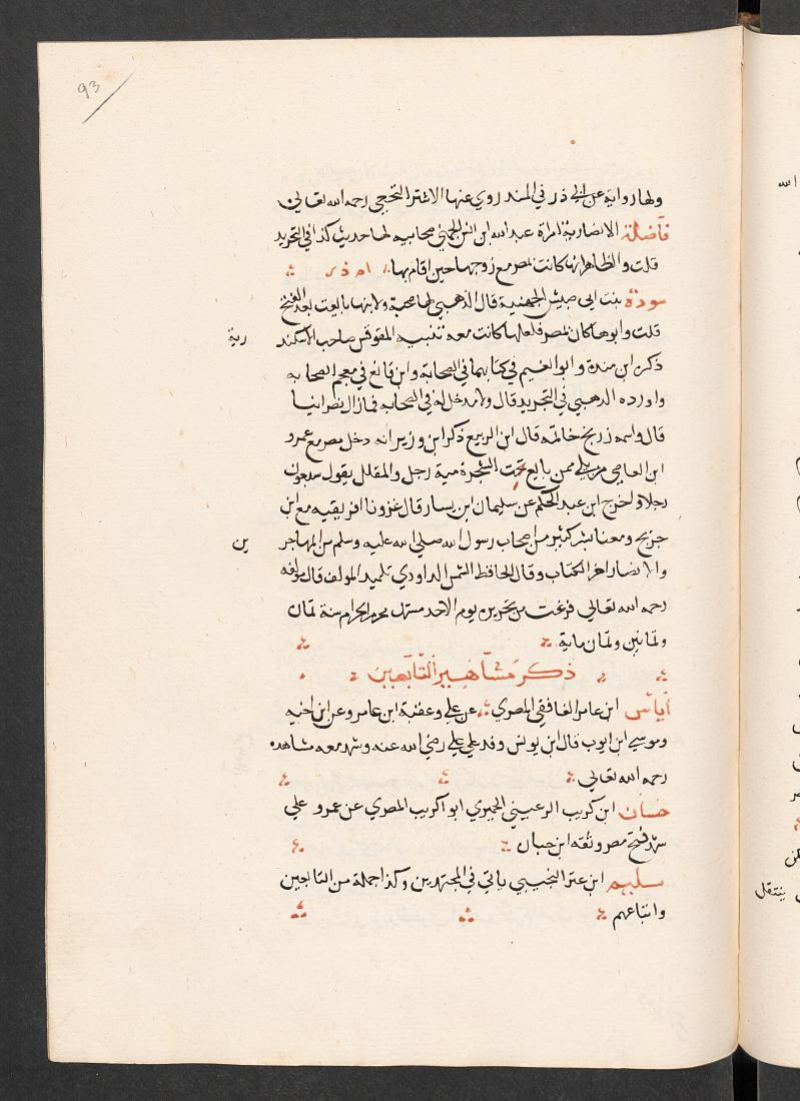 93
ولها رواية عن ابي ذر في المسند روي عنها الاشتر النخعي رحمه الله تعالي
فاضلة الانصارية امراة عبد الله ابن انس الجهني صحابيه لها حديث كذا في التجريد
قلت والظاهر انها كانت بمصر مع زوجها حين اقام بها ام ذر
سودة بنت ابي ضبيش الجهنية قال الذهبي لها صحبة ولابيها بايعت بعد الفتح
قلت وابوها كان بمصر فلعلها كانت معه تنبيه المقوقس صاحب الاسكند رية
ذكره ابن مندة وابو نعيم في كتابيهما في الصحابة وابن قانع في معجم الصحابه
واورده الذهبي في التجريد قال ولا مدخل له في الصحابه فما زال نصرانيا
قال واسمه جريج خاتمه قال ابن الربيع ذكر ابن وزير انه دخل مصر مع عمرو
ابن العاصي من بلي ممن بايع تحت الشجرة مية رجل والمقلل يقول سبعون
رجلا واخرج ابن عبد الحكم عن سليمان ابن يسار قال غزونا افريقيه مع ابن
حزيج ومعنا بشر كثير من اصحاب رسول الله صلي الله عليه وسلم من المهاجر ين
والانصار اخر الكتاب وقال الحافظ الشمس الداودي تلميد المولف قال مولفه
رحمه الله تعالي فرغت من تحريره يوم الاحد مستهل محرم الحرام سنة ثمان
وثمانين وثمان ماية
ذكر مشاهير التابعين
اياس ابن عامر الغافقي المصري عن علي وعقبة ابن عامر وعن ابن اخيه
وموسي ابن ايوب قال ابن يونس وفد علي علي رضي الله عنه وشهد معه مشاهده
رحمه الله تعالي
حسان ابن كريب الرعيني الحميري ابو اكريب المصري عن عمرو علي
شهد فتح مصر وثقه ابن حبان
سليم ابن عتر التجيبي ياتي في المجتهدين وكذا جملة من التابعين
واتباعهم